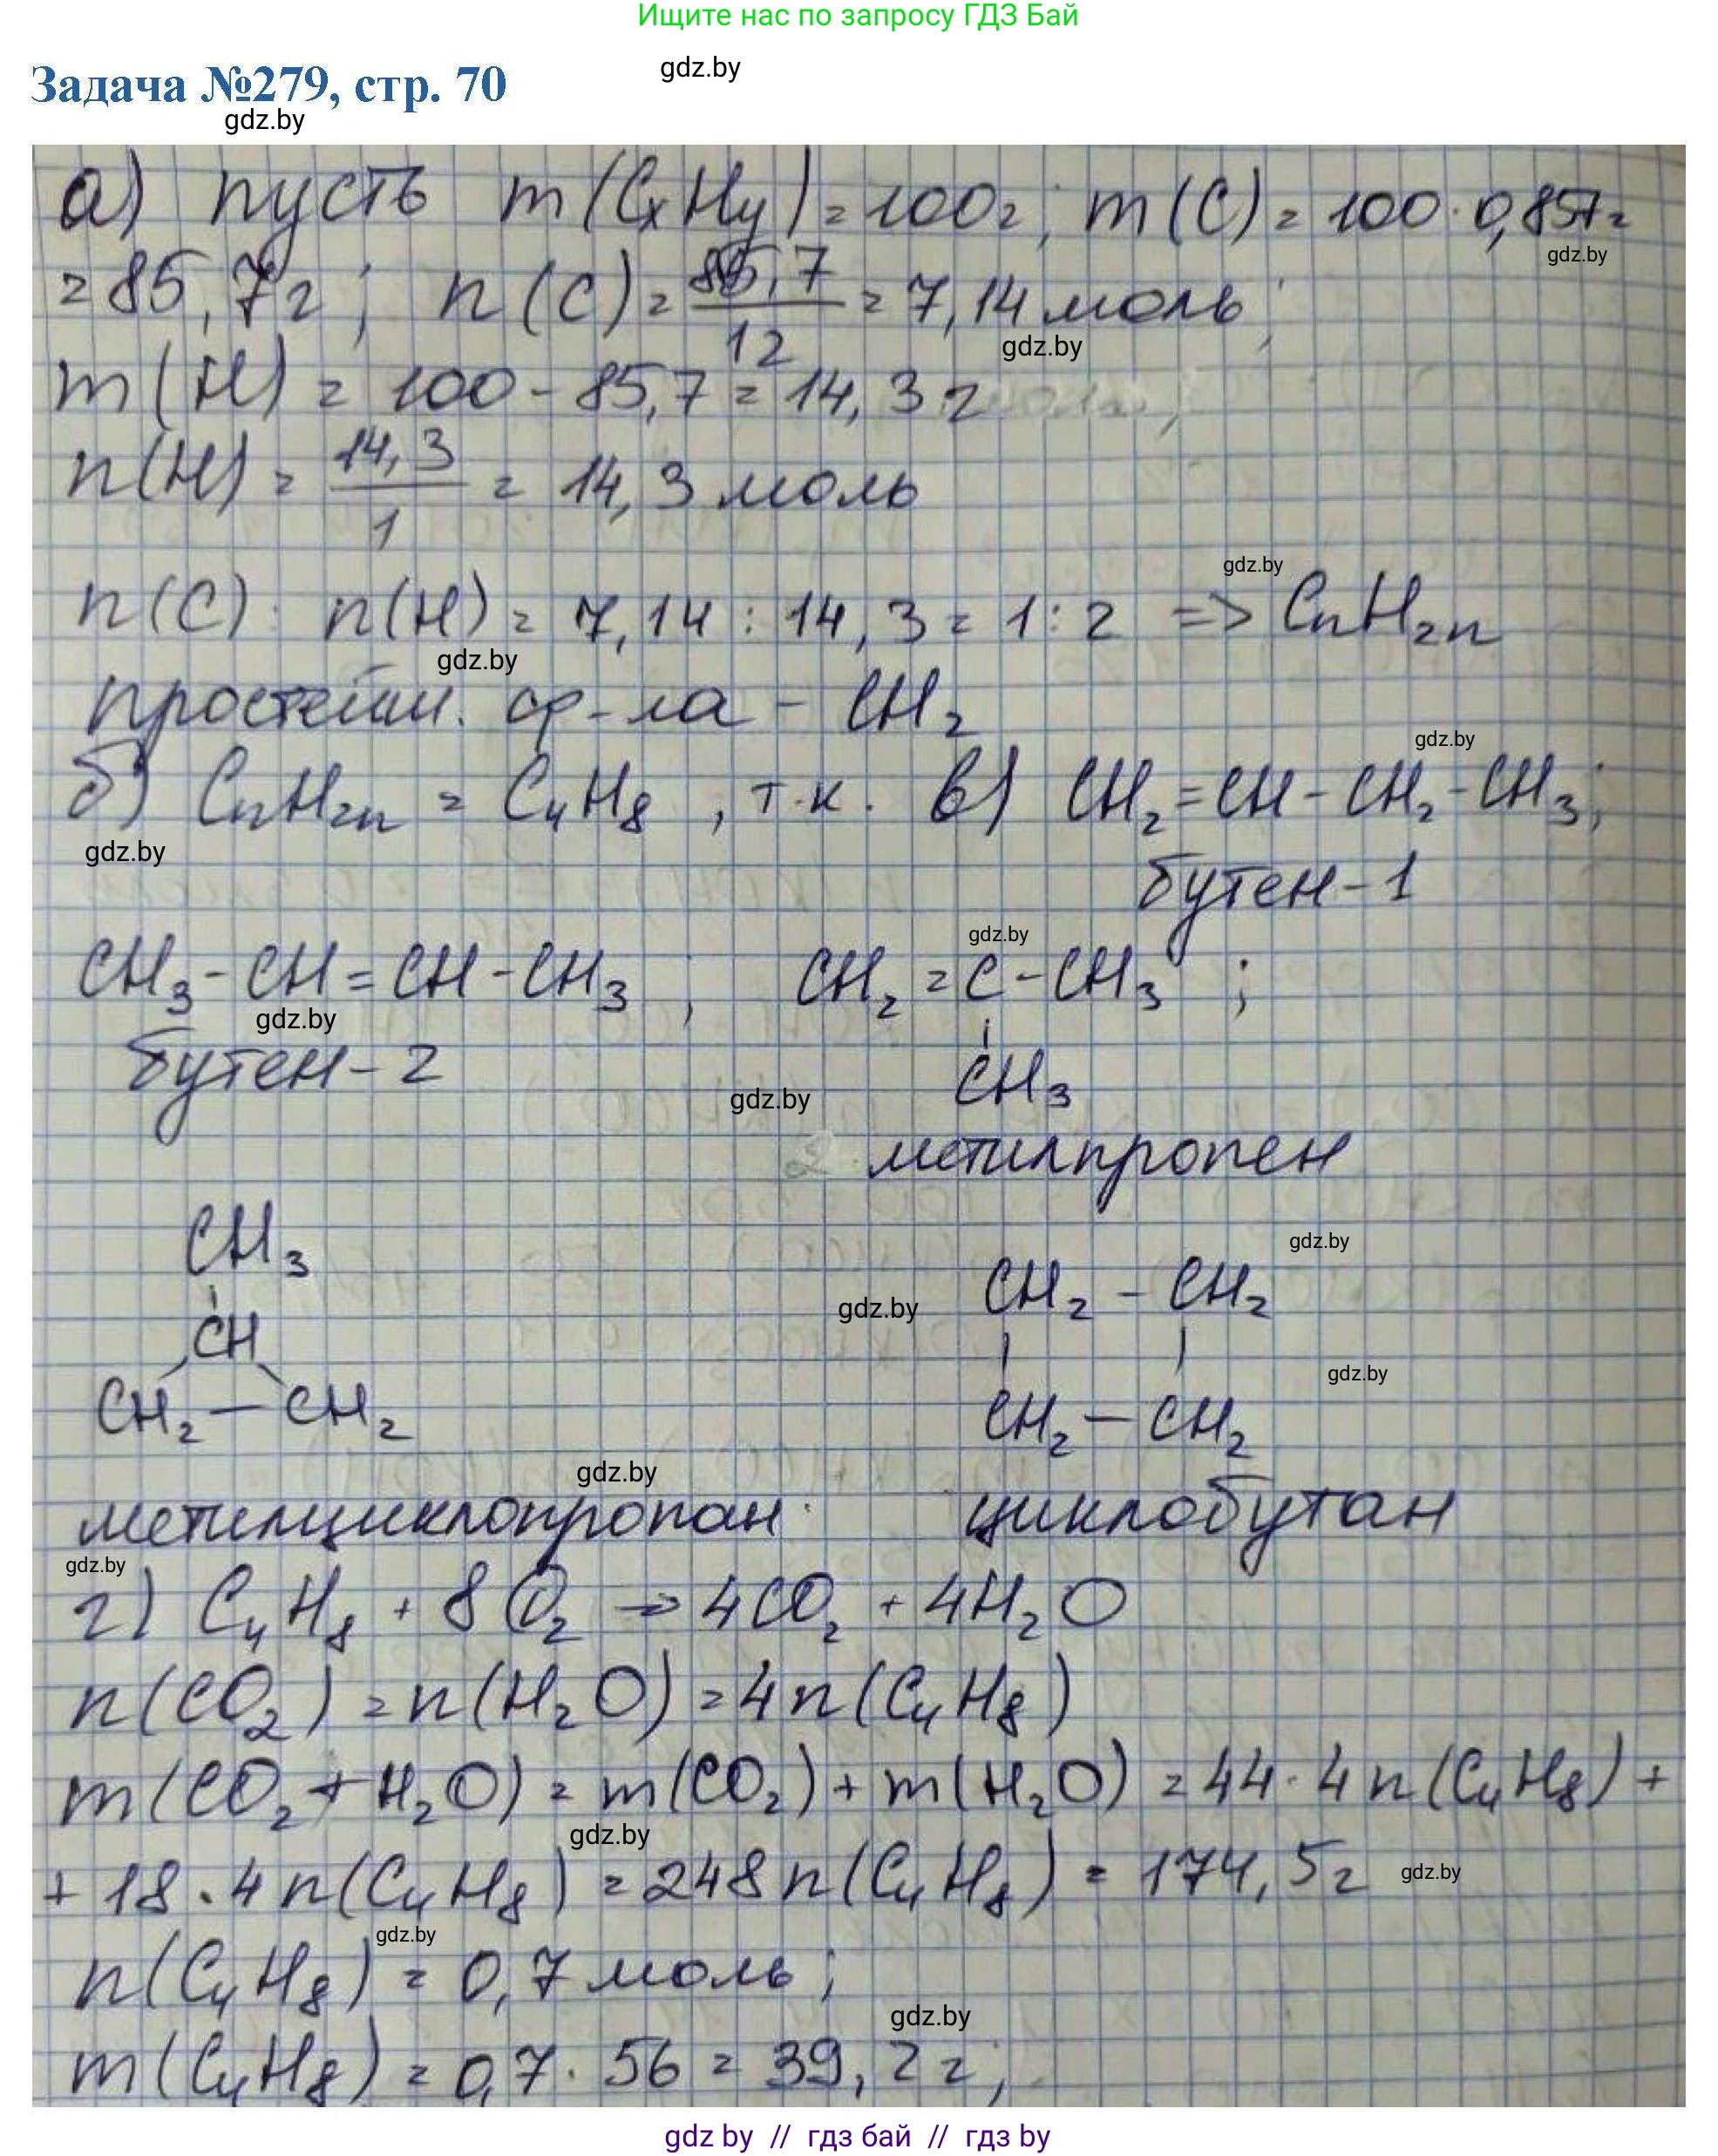 Ищите нас по запросу ГДЗ Бай
gdz.by
Задача №279, стр. 70
gdz.by
а) пусть m(CxHy) = 100г; m(C) = 100 · 0,857 =
gdz.by
= 85,7г; n(C) = 85,7/12 = 7,14 моль;
gdz.by
m(H) = 100 - 85,7 = 14,3 г
n(H) = 14,3/1 = 14,3 моль
gdz.by
n(C) : n(H) = 7,14 : 14,3 = 1 : 2 => CnH2n
gdz.by
простейш. ф-ла - CH2
gdz.by
б) CnH2n = C4H8, т.к. в) CH2=CH-CH2-CH3;
gdz.by
бутен-1
gdz.by
CH3-CH=CH-CH3; CH2=C-CH3;
gdz.by
CH3
бутен-2
gdz.by
2 метилпропен
CH3
gdz.by
CH2 - CH2
gdz.by
CH
gdz.by
CH2 - CH2 CH2 - CH2
gdz.by
метилциклопропан. циклобутан
gdz.by
г) C4H8 + 8O2 → 4CO2 + 4H2O
n(CO2) = n(H2O) = 4n(C4H8)
m(CO2 + H2O) = m(CO2) + m(H2O) = 44 · 4n(C4H8) +
gdz.by
+ 18 · 4n(C4H8) = 248n(C4H8) = 174,5г
gdz.by
gdz.by
n(C4H8) = 0,7 моль;
gdz.by
m(C4H8) = 0,7 · 56 = 39,2 г;
gdz by // гдз бай // гдз by